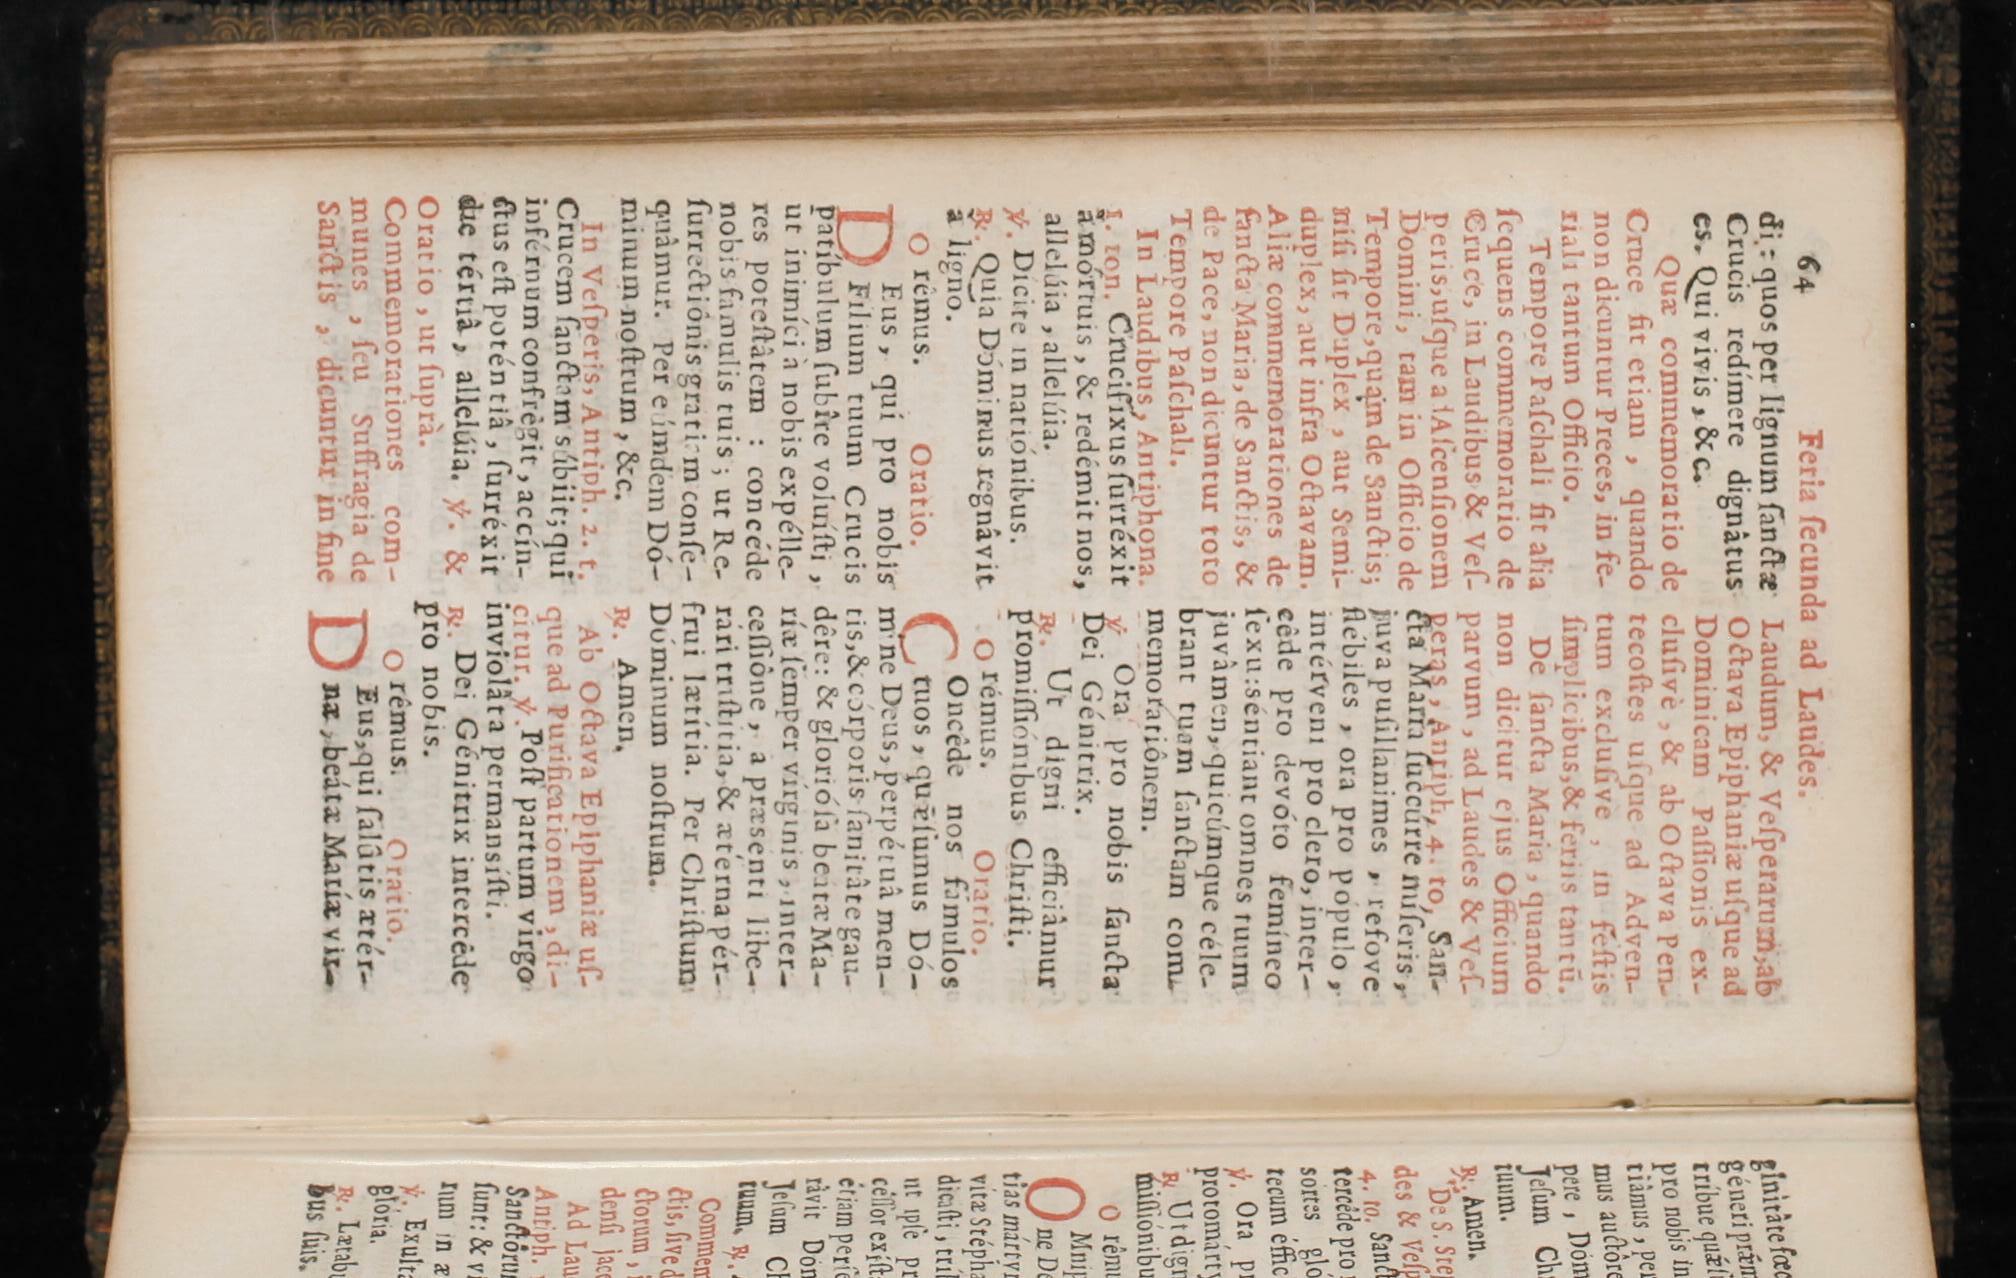 64 Feria ſecunda ad Laudes.
di: quos per lignum ſanctæ
Crucis redímere dignâtus
es. Qui vivis, &c.
Quæ commemoratio de
Cruce fit etiam, quando
non dicuntur Preces, in fe-
riali tantum Officio.
Tempore Paſchali fit alia
ſequens commemoratio de
Cruce, in Laudibus & Veſ-
peris, uſque ad Aſcenſionem
Domini, tam in Officio de
Tempore, quàm de Sanctis;
niſi ſit Duplex, aut Semi-
duplex, aut infra Octavam.
Aliæ commemorationes de
ſancta Maria, de Sanctis, &
de Pace, non dicuntur toto
Tempore Paſchali.
In Laudibus, Antiphona.
1. ton. Crucifíxus ſurréxit
à mórtuis, & redémit nos,
allelúia, allelúia.
℣. Dicite in natiónibus.
℟. Quia Dóminus regnâvit
à ligno.
O rêmus. Oratio.
DEus, qui pro nobis
Fílium tuum Crucis
patíbulum ſubîre voluíſti,
ut inimíci à nobis expélle-
res poteſtâtem: concéde
nobis fámulis tuis; ut Re-
ſurrectiônis grátiam conſe-
quâmur. Per eúmdem Dó-
minum noſtrum, &c.
In Veſperis, Antiph. 2. t.
Crucem ſanctam súbiit; qui
inférnum confrêgit, accín-
ctus eſt poténtiâ, ſurréxit
die tértiâ, allelúia. ℣. &
Oratio, ut ſuprà.
Commemorationes com-
munes, ſeu Suffragia de
Sanctis, dicuntur in fine
Laudum, & Veſperarum, ab
Octava Epiphaniæ uſque ad
Dominicam Paſſionis ex-
cluſivè, & ab Octava Pen-
tecoſtes uſque ad Adven-
tum excluſivè, in feſtis
ſimplicibus, & feriis tantū.
De ſancta Maria, quando
non dicitur ejus Officium
parvum, ad Laudes & Veſ-
peras, Antiph. 4. to, San-
cta María ſuccúrre míſeris,
juva puſillánimes, réfove
flébiles, ora pro pópulo,
intérveni pro clero, inter-
cêde pro devóto femíneo
ſexu: séntiant omnes tuum
juvâmen, quicúmque céle-
brant tuam ſanctam com-
memoratiônem.
℣ Ora pro nobis ſancta
Dei Génitrix.
℟. Ut digni efficiâmur
promiſſiónibus Chriſti.
O rémus. Oratio.
COncêde nos fámulos
tuos, quæſumus Dó-
mine Deus, perpétuâ men-
tis, & córporis ſanitâte gau-
dêre: & glorióſa beátæ Ma-
ríæ ſemper vírginis, inter-
ceſſiône, a præsenti libe-
rári triſtítia, & ætérna pér-
frui lætítia. Per Chriſtum
Dóminum noſtrum.
℟. Amen.
Ab Octava Epiphaniæ uſ-
que ad Purificationem, di-
citur. ℣. Poſt partum virgo
invioláta permansíſti.
℟. Dei Génitrix intercêde
pro nobis.
O rêmus. Oratio.
DEus, qui ſalûtis ætér-
næ, beátæ Maríæ vir-
ginitâte fœc
géneri præm
tríbue quǽ
pro nobis in
tiâmus, per
mus auctôre
pere, Dóm
Jeſum Ch
tuum.
℟. Amen.
De S. Ste
des & Veſp
4. to. Sanct
tercêde pro
ſortes glo
tecum éffic
℣. Ora pr
protomárty
℟. Ut dign
miſſiónibu
O rêmu
OMnip
ne De
tias mártyr
vitæ Stépha
dicáſti, tríb
ut ipſe pr
céſſor exíſt
étiam perſe
râvit Dóm
Jeſum Ch
tuum. ℟.
Commem
ctis, ſive d
ctorum,
denſi jac
Ad Lau
Antiph.
Sanctôrum
ſunt: & vi
rum in æ
℣. Exultá
glória.
℟. Lætabu
bus ſuis.